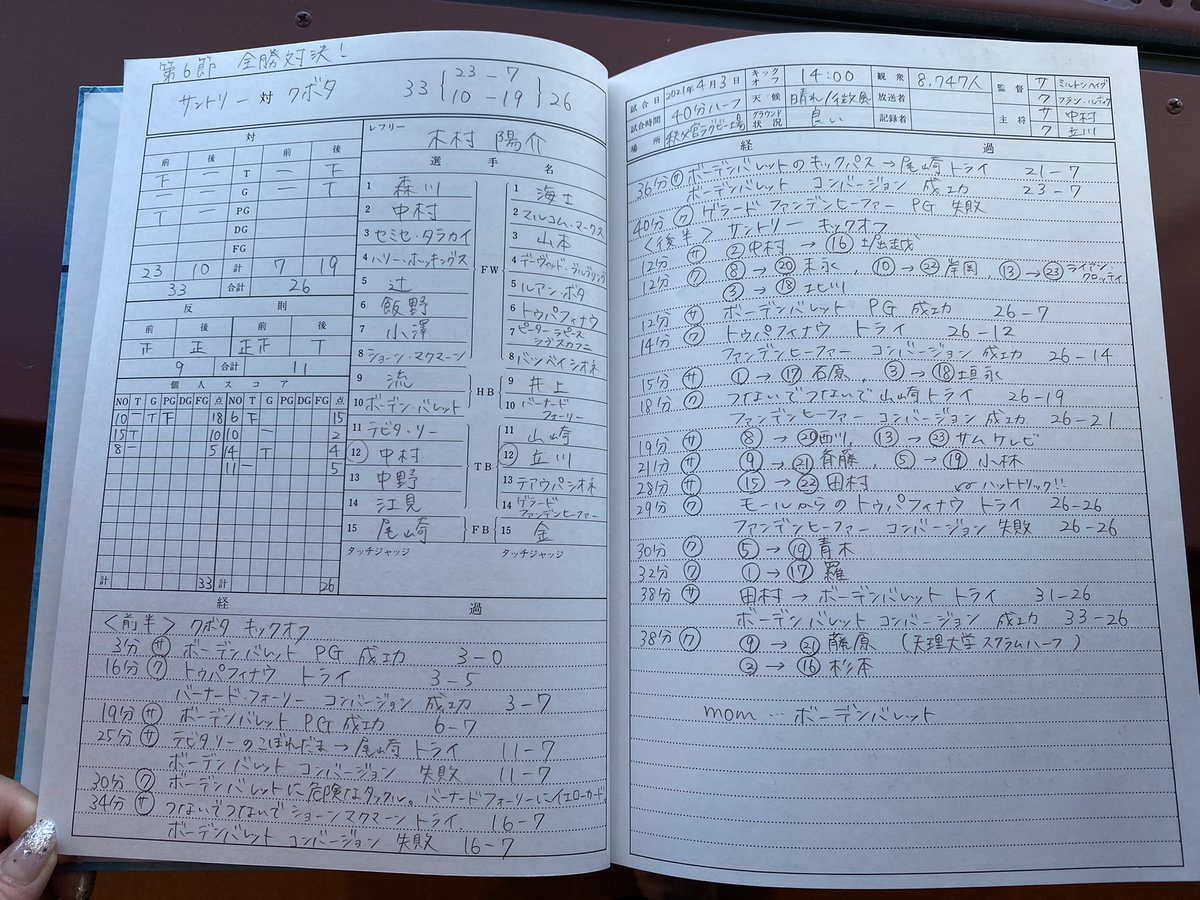 第6節 全勝対決!
サントリー 対 クボタ 33 { 23-7 10-19 } 26
対
前 後 前 後
下 一 T 一 下
一 一 G 一 T
T 一 PG
DG
FG
23 10 計 7 19
33 合計 26
反則
前 後 前 後
正 正 正正 T
9 合計 11
個人スコア
NO T G PG DG FG 点 NO T G PG DG FG 点
10 一 T 下 18 6 下 15
15 T 10 10 一 2
8 一 5 14 T 4
11 一 5
計 33 計 26
レフリー 木村 陽介
選手名
1 森川 FW 1 海士
2 中村 2 マルコム・マークス
3 セミセ・タラカイ 3 山本
4 ハリー・ホッキングス 4 デーヴィッド・ブルブリング
5 辻 5 ルアン・ボタ
6 飯野 6 トゥパフィナウ
7 小澤 7 ピーター・ラピース・ラブスカフニ
8 ショーン・マクマーン 8 バツベイシオネ
9 流 HB 9 井上
10 ボーデン・バレット 10 バーナード フォーリー
11 テビタ・リー TB 11 山崎
12 中村 12 立川
13 中野 13 テアウパシオネ
14 江見 14 ゲラード ファンデンヒーファー
15 尾崎 FB 15 金
タッチジャッジ タッチジャッジ
経過
<前半> クボタ キックオフ
3分 サ ボーデンバレット PG 成功 3-0
16分 ク トゥパフィナウ トライ 3-5
バーナード・フォーリー コンバージョン 成功 3-7
19分 サ ボーデンバレット PG 成功 6-7
25分 サ テビタリーのこぼれだま→尾崎トライ 11-7
ボーデンバレット コンバージョン 失敗 11-7
30分 ク ボーデンバレットに危険なタックル。バーナードフォーリーにイエローカード。
34分 サ つないでつないでショーンマクマーントライ. 16-7
ボーデンバレット コンバージョン 失敗 16-7
試合日 2021年4月3日 キックオフ 14:00 観衆 8,747人 監督 サ ミルトンヘイグ
試合時間 40分ハーフ 天候 晴れ/微風 放送者 ク フラン・ルディケ
場所 秩父宮ラグビー場 グラウンド状況 良い 記録者 主将 サ 中村
ク 立川
経過
36分 サ ボーデンバレットのキックパス→尾崎トライ 21-7
ボーデンバレット コンバージョン 成功 23-7
40分 ク ゲラード ファンデンヒーファー PG 失敗
<後半> サントリー キックオフ
12分 サ ②中村→⑯堀越
12分 ク ⑧→⑳末永, ⑩→㉒岸岡, ⑬→㉓ライアン・クロッティ
③→⑱北川
12分 サ ボーデンバレット PG 成功 26-7
14分 ク トゥパフィナウ トライ 26-12
ファンデンヒーファー コンバージョン 成功 26-14
15分 サ ①→⑰石原, ③→⑱垣永
18分 ク つないでつないで山崎トライ 26-19
ファンデンヒーファー コンバージョン 成功 26-21
19分 サ ⑧→⑳西川, ⑬→㉓サムケレビ
21分 サ ⑨→㉑斉藤, ⑤→⑲小林
28分 サ ⑮→㉒田村 ハットトリック!!
29分 ク モールからのトゥパフィナウ トライ 26-26
ファンデンヒーファー コンバージョン 失敗 26-26
30分 ク ⑤→⑲青木
32分 ク ①→⑰羅
38分 サ 田村→ボーデンバレット トライ 31-26
ボーデンバレット コンバージョン 成功 33-26
38分 ク ⑨→㉑藤原 (天理大学スクラムハーフ)
②→⑯杉本
mom…ボーデンバレット